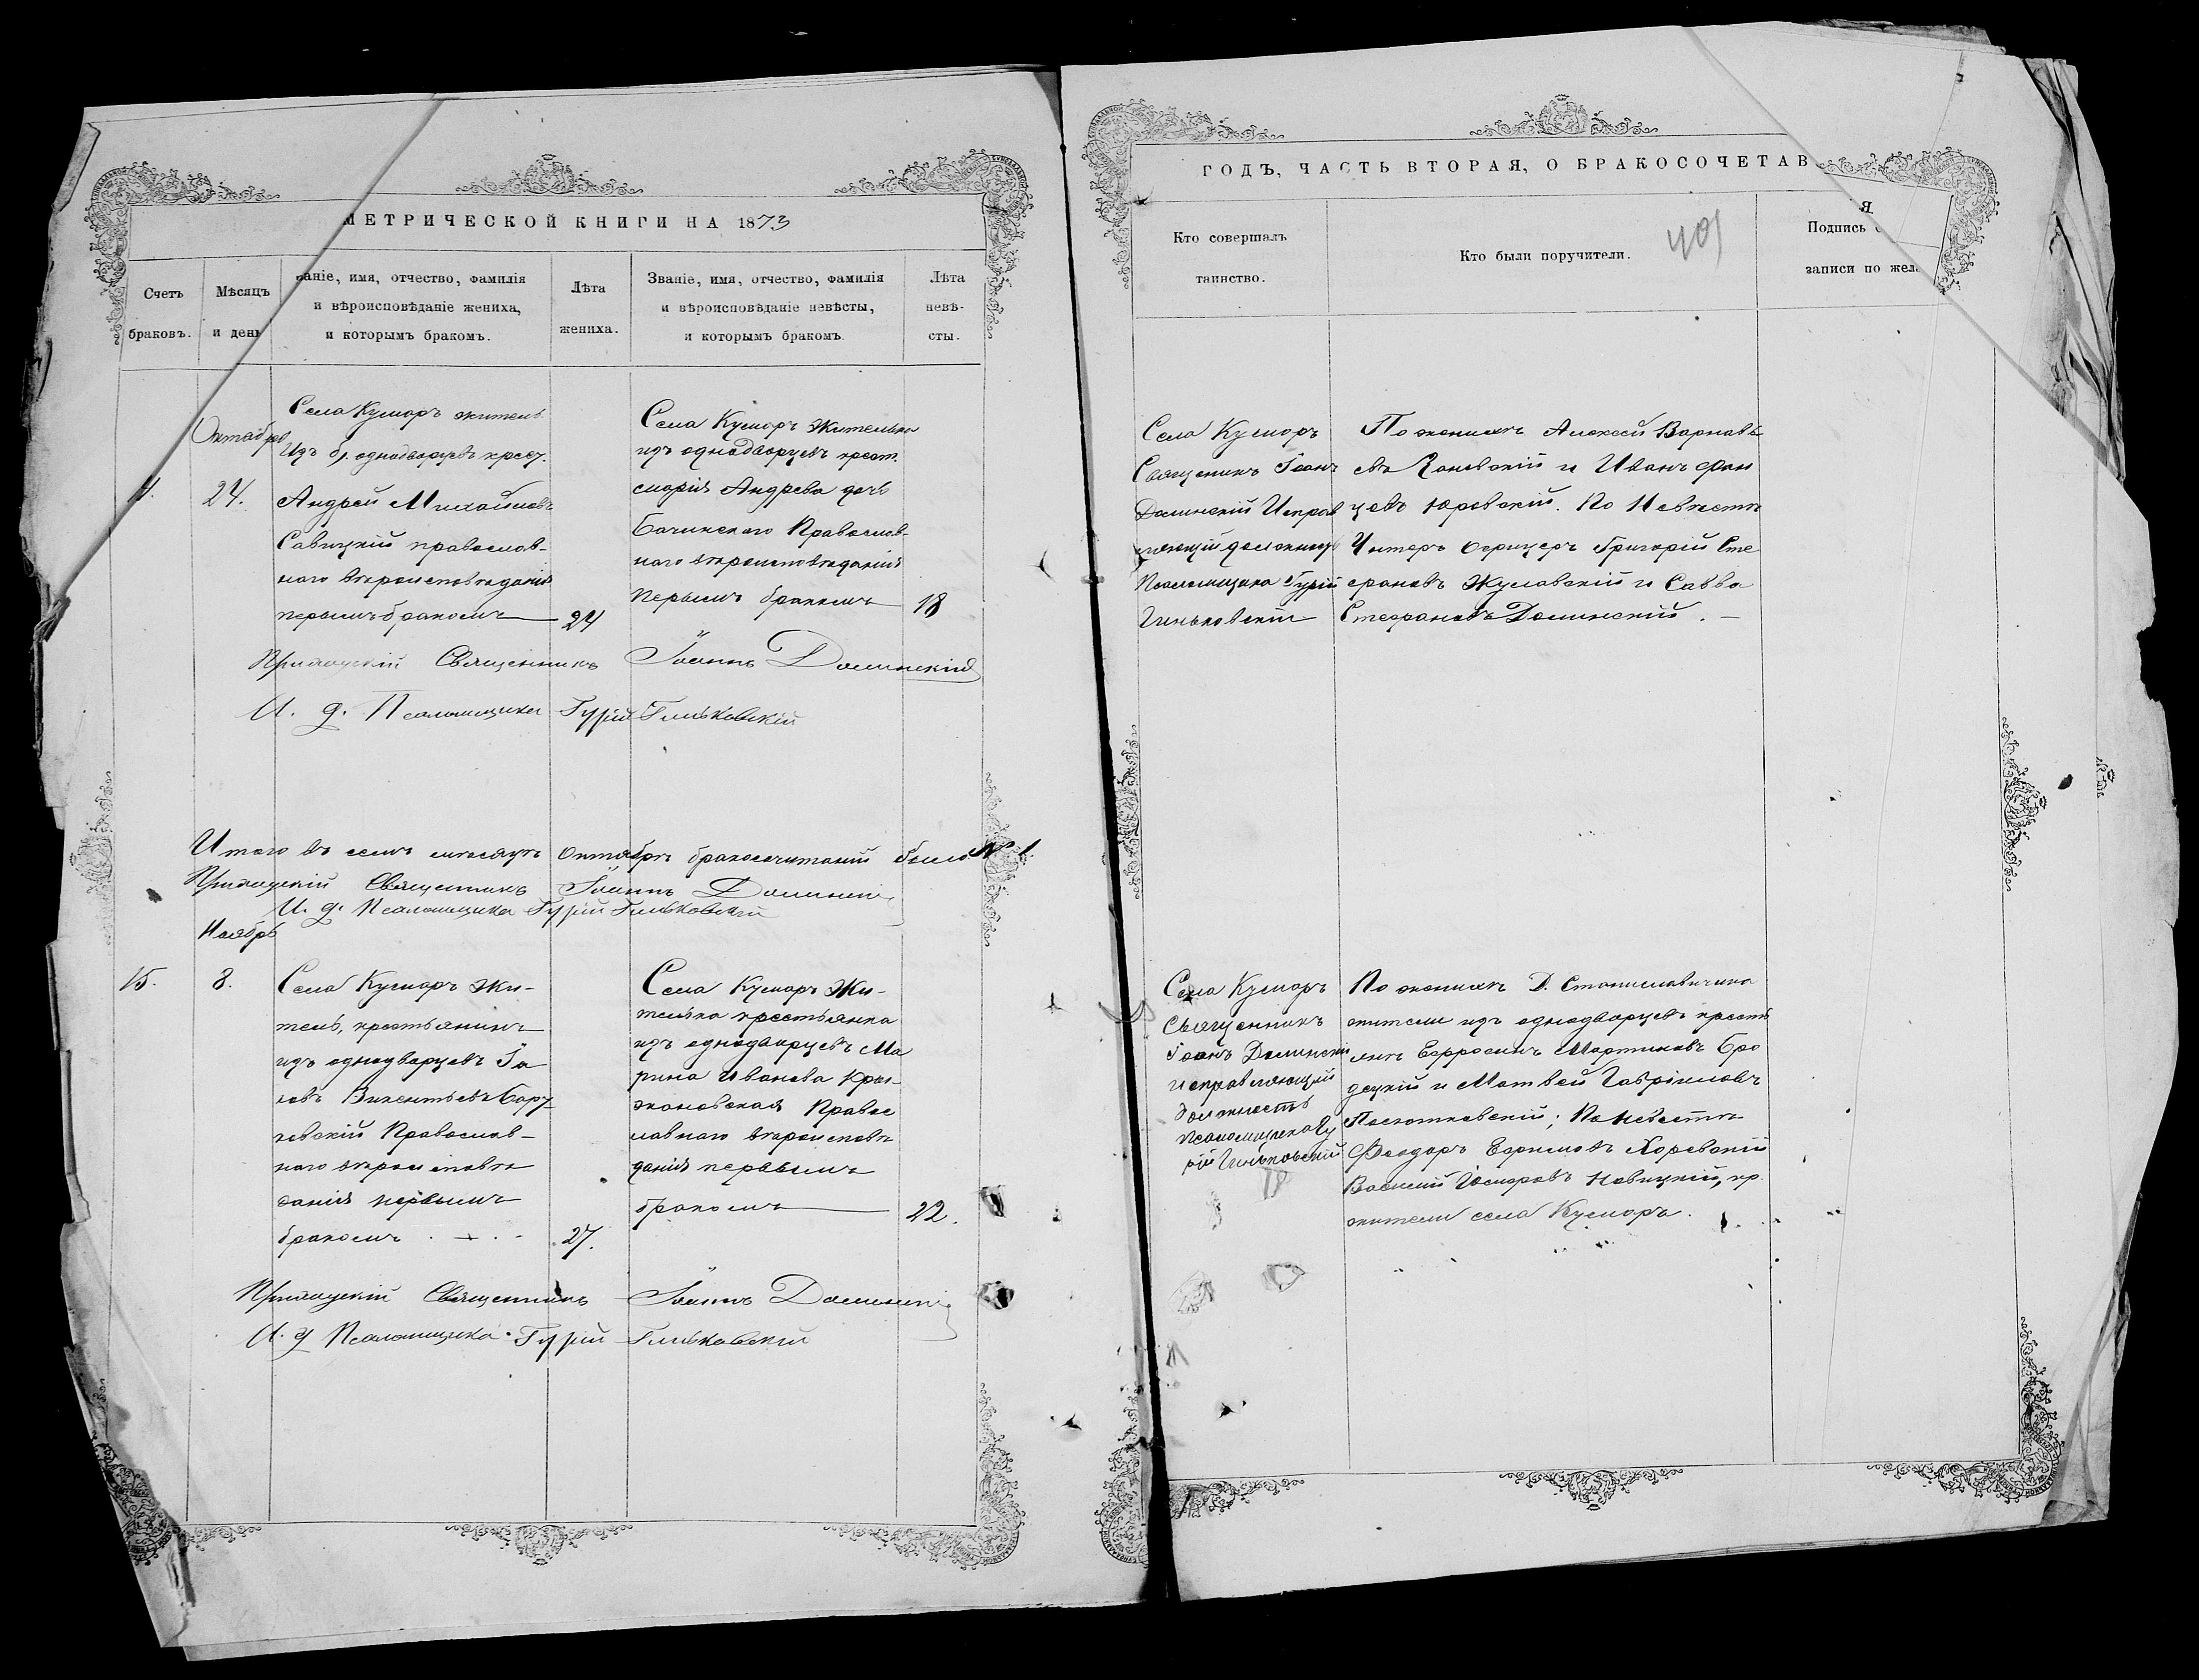 МЕТРИЧЕСКОЙ КНИГИ НА 1873
Счетъ браковъ.
Мѣсяцъ и день
ваніе, имя, отчество, фамилія
и вѣроисповѣданіе жениха,
и которымъ бракомъ.
Лѣта жениха.
Званіе, имя, отчество, фамилія
и вѣроисповѣданіе невѣсты,
и которымъ бракомъ
Лѣта невѣ-
сты.
Октябрь
24.
Села Куморъ житель
Изъ б. однодворцевъ крест.
Андрей Михайловъ
Савицкій православ-
наго вѣроисповѣданія
первымъ бракомъ
24
Села Куморъ жителька
изъ однодворцевъ крест.
Марія Андрева дочь
Бачинскаго Православ-
наго вѣроисповѣданія
первымъ бракомъ
18
Приходскій Священникъ Іоаннъ Долинскій
И. д. Псаломщика Гурій Гиньковскій
Итого въ семъ мѣсяцѣ Октябрѣ бракосочитаній было № 1.
Приходскій Священникъ Іоаннъ Долинскій
И. д. Псаломщика Гурій Гиньковскій
Ноябрь
15.
8.
Села Куморъ Жи-
тель, крестьянинъ
изъ однодворцевъ Іа
ковъ Викентьевъ
Православ-
наго вѣроисповѣ
данія первымъ
бракомъ
27.
Села Куморъ Жи-
телька крестьянка
изъ однодворцевъ Ма
рина Иванова Кры-
жановская Правос
лавнаго вѣроисповѣ
данія первымъ
бракомъ
22.
Приходскій Священникъ Іоаннъ Долинскій
И. д. Псаломщика Гурій Гиньковскій
ГОДЪ, ЧАСТЬ ВТОРАЯ, О БРАКОСОЧЕТАВ
Я
Кто совершалъ
таинство.
Кто были поручители.
401
Подпись
записи по жела
Села Куморъ
Священикъ Іоанъ
Долинскій Исправ
ляющій должность
Псаломщика Гурій
Гиньковскій
По женихѣ Алексѣй Варнавь
евъ Яновскій и Иванъ Фран
цовъ Юровскій. По Невѣстѣ
Унтеръ Офицеръ Григорій Сте
фановъ Жулавскій и Савва
Стефановъ Долинскій.
Села Куморъ
Священникъ
Іоанъ Долинскій
исправляющій
должность
Псаломщика Гу
рій Гиньковскій
По женихѣ Д. Станиславчика
жители изъ однодворцевъ кресть
янъ Ефросинъ Мартиновъ Бро
децкій и Матвей Гавріиловъ
По Невѣстѣ
Феодоръ Ефимовъ Хоревскій
Василій Іосифовъ Новицкій, кр.
жители села Куморъ.